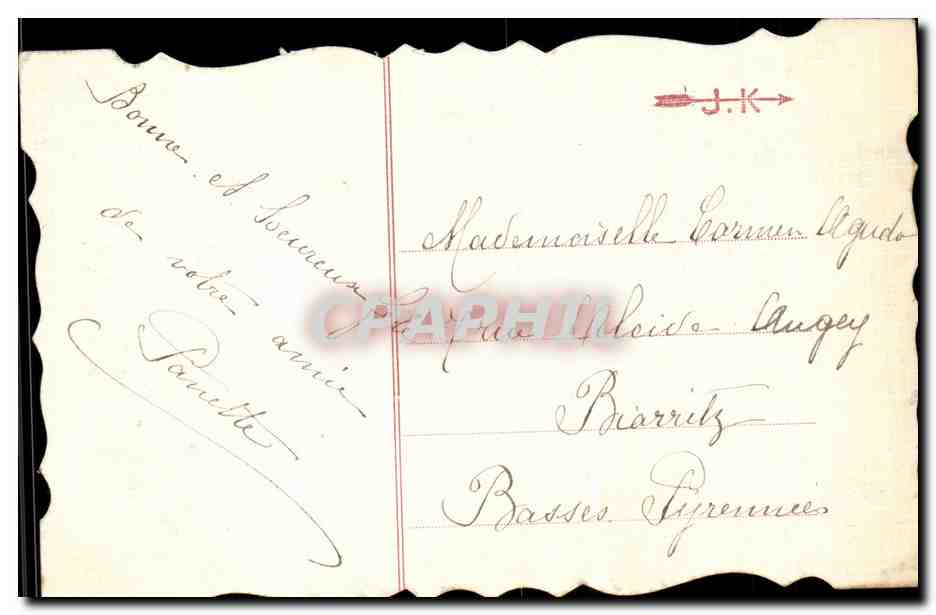 Bonne et heureuse
de votre amie
Panette
J.K
Mademoiselle Carmen Agudo
Alcide Augey
Biarritz
Basses Pyrennées
CPAPHIL